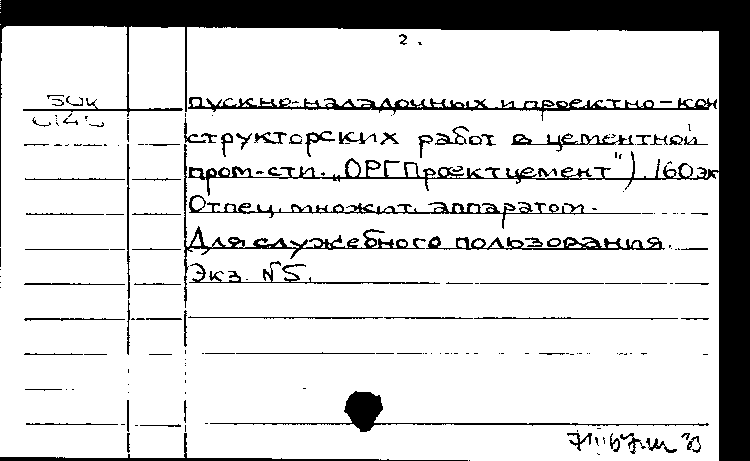 2.
пускно-наладочных и проектно-кон
структорских работ в цементной
пром-сти. „ОРГПроектцемент"). 160 эк
Отпеч. множит. аппаратом.
Для служебного пользования.
Экз. №5.